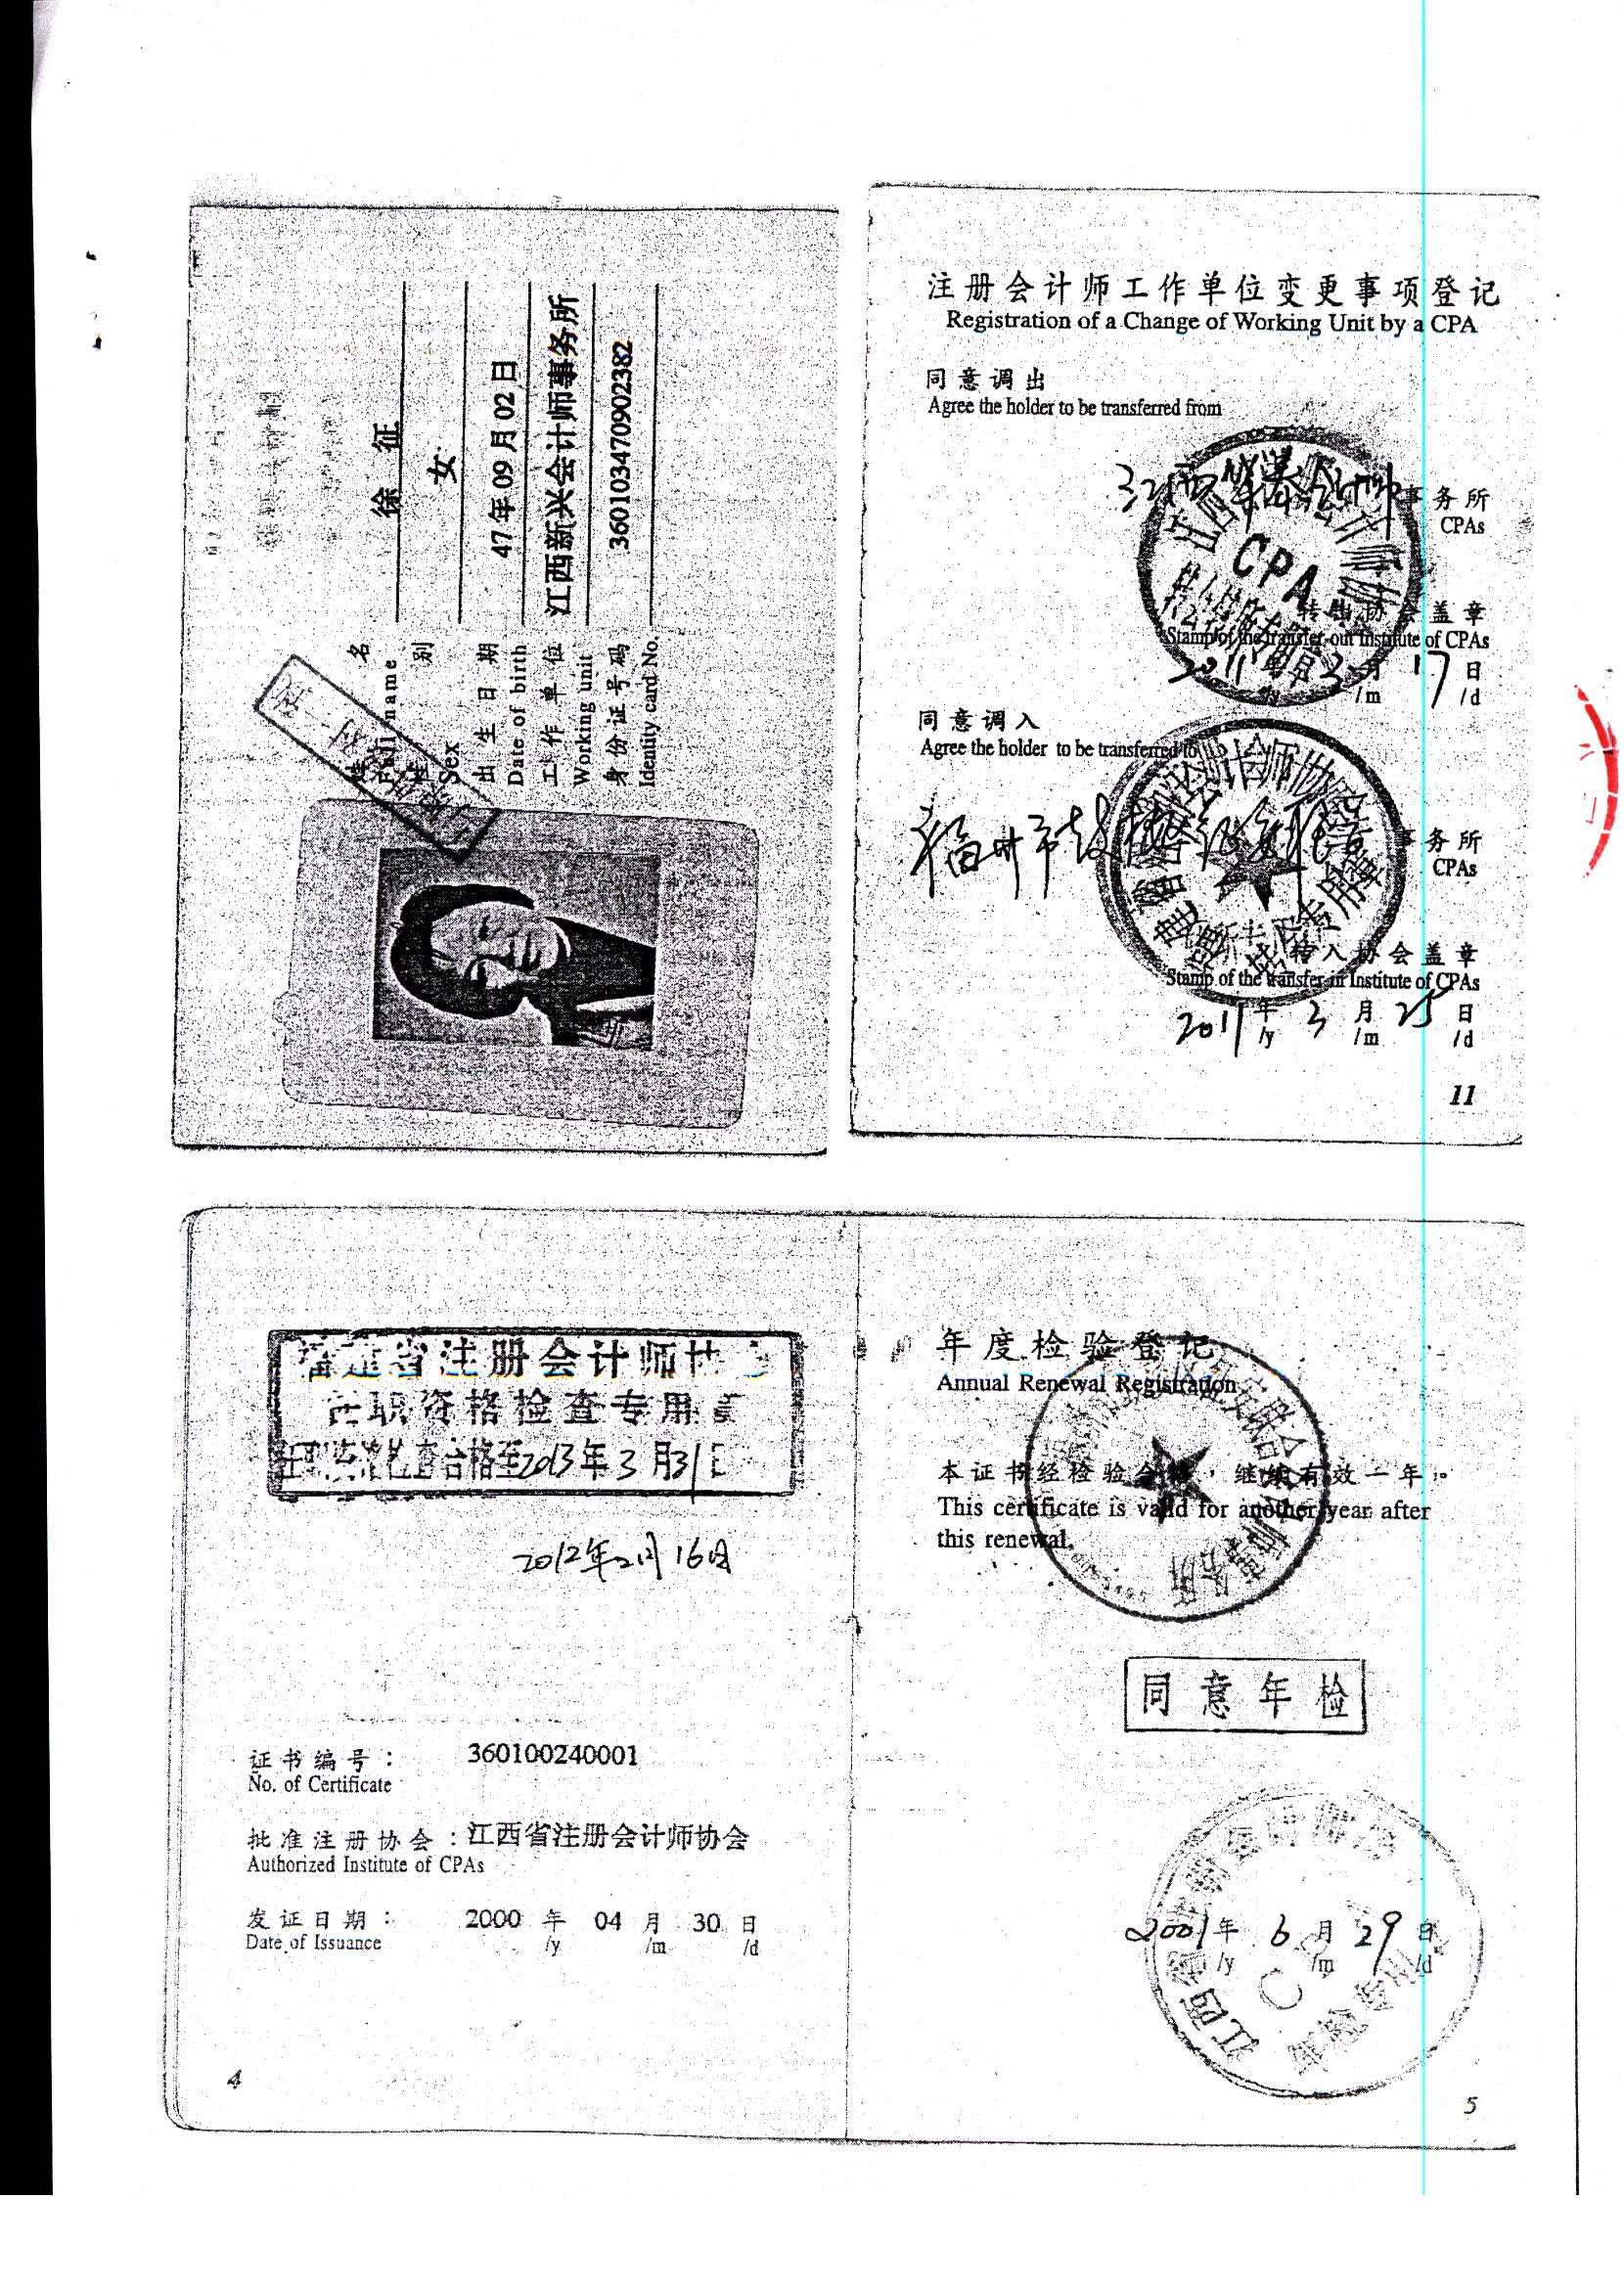 姓名 徐征
Full name
性别 女
Sex
出生日期 47年09月02日
Date of birth
工作单位 江西新兴会计师事务所
Working unit
身份证号码 360103470902382
Identity card No.
注册会计师工作单位变更事项登记
Registration of a Change of Working Unit by a CPA
同意调出
Agree the holder to be transferred from
事务所
CPAs
CPA
转出协会盖章
Stamp of the transfer-out Institute of CPAs
2011年3月17日
/y /m /d
同意调入
Agree the holder to be transferred to
福州市
事务所
CPAs
转入协会盖章
Stamp of the transfer-in Institute of CPAs
2011年3月25日
/y /m /d
11
福建省注册会计师协会
任职资格检查专用章
检查合格至2013年3月31日
2012年2月16日
证书编号: 360100240001
No. of Certificate
批准注册协会: 江西省注册会计师协会
Authorized Institute of CPAs
发证日期: 2000年04月30日
Date of Issuance /y /m /d
4
年度检验登记
Annual Renewal Registration
本证书经检验合格,继续有效一年。
This certificate is valid for another year after
this renewal.
同意年检
2001年6月29日
/y /m /d
5